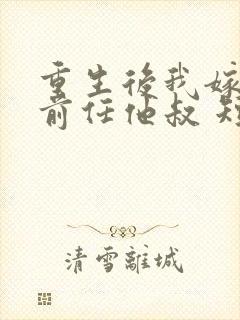 重生後我嫁
前任他叔 短
清雪離城